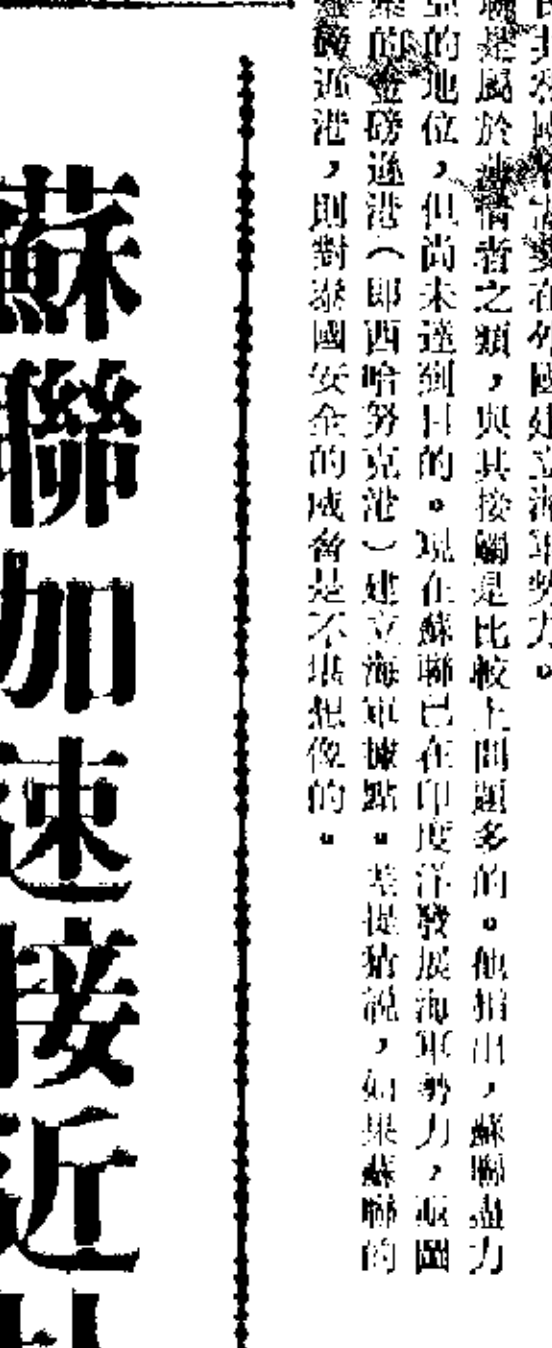 在外國建立海軍勢力。
是屬於 者之類,與其接觸是比較上問題多的。他指出,蘇聯盡力
的地位,但尚未達到目的。現在蘇聯已在印度洋發展海軍勢力,版圖
的金磅遜港(即西哈努克港)建立海軍據點。基提猜說,如果蘇聯的
磅遜港,則對泰國安全的威脅是不堪想像的。
蘇聯加速接近